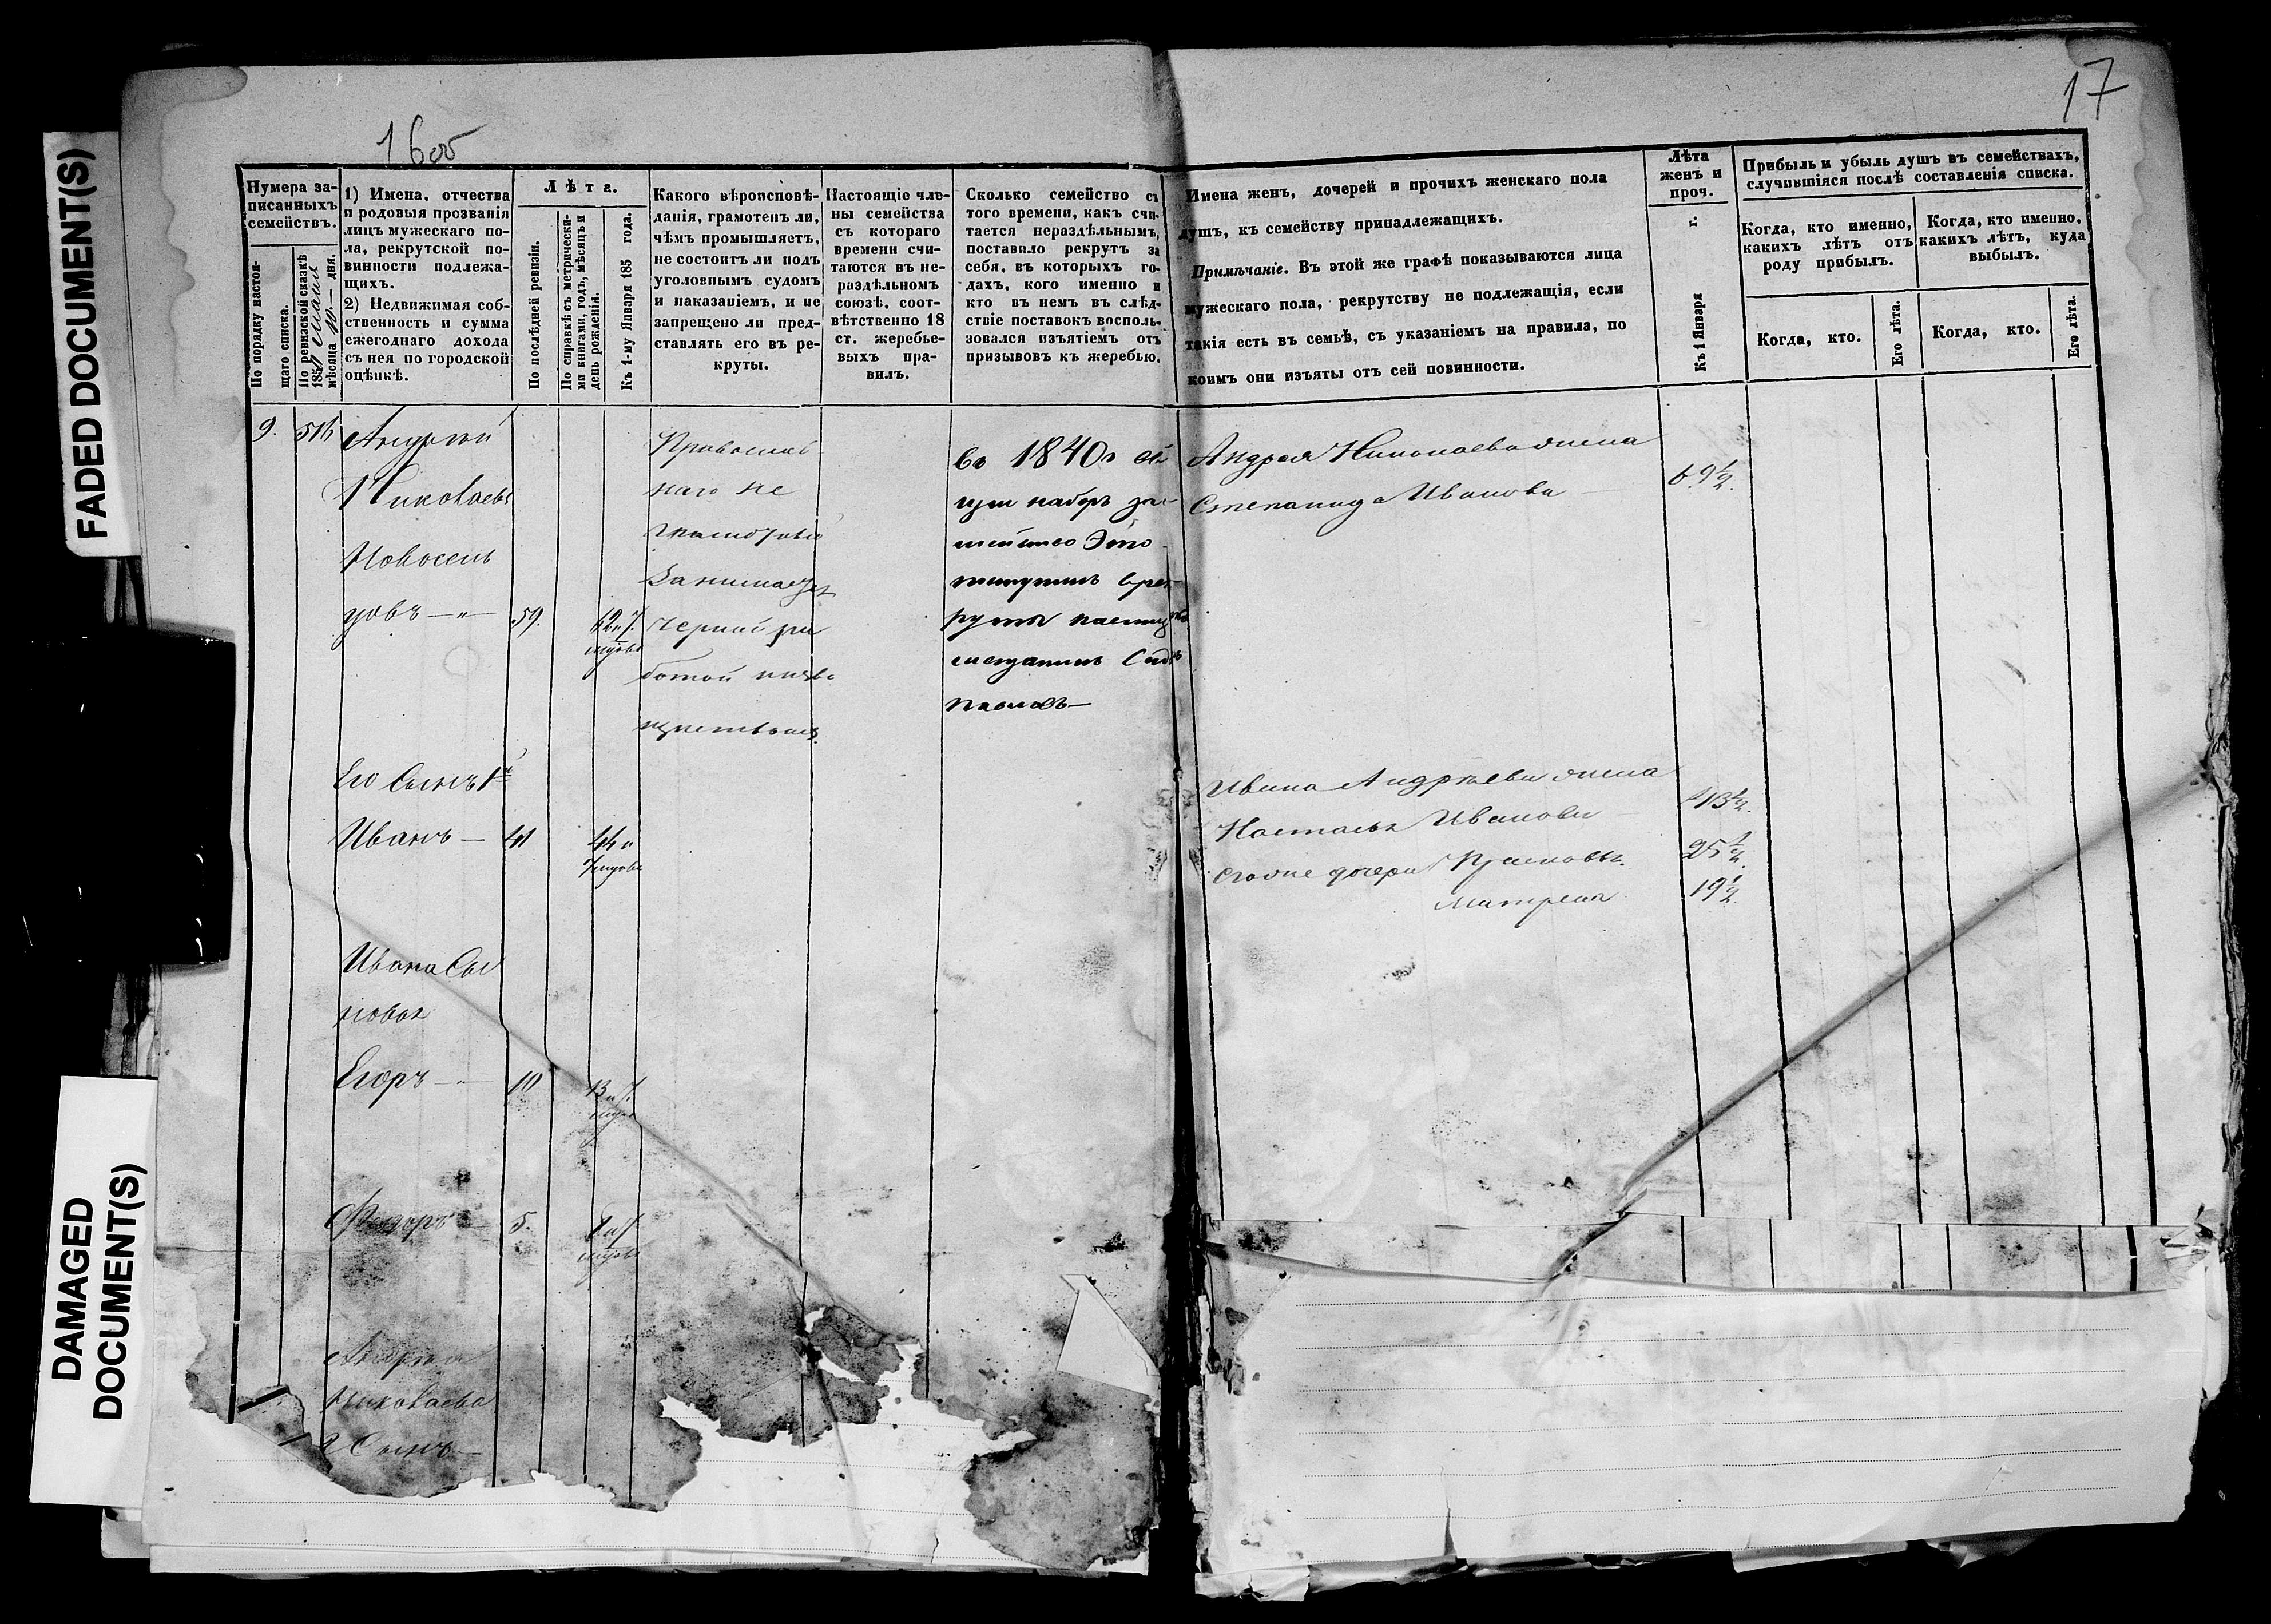 FADED DOCUMENT(S)
DAMAGED
DOCUMENT(S)
16об
17
Нумера за-
писанныхъ
семействъ.
По порядку настоя-
щаго списка.
По ревизской сказкѣ
185 мѣсяца 10 дня.
1) Имена, отчества
и родовыя прозванія
лицъ мужескаго по-
ла, рекрутской по-
винности подлежа-
щихъ.
2) Недвижимая соб-
ственность и сумма
ежегоднаго дохода
съ нея по городской
оцѣнкѣ.
Лѣта.
По послѣдней ревизіи.
По справкѣ съ метрически-
ми книгами, годъ, мѣсяцъ и
день рожденія.
Къ 1-му Января 185 года.
Какого вѣроисповѣ-
данія, грамотенъ ли,
чѣмъ промышляетъ,
не состоитъ ли подъ
уголовнымъ судомъ
и наказаніемъ, и не
запрещено ли пред-
ставлять его въ ре-
круты.
Настоящіе чле-
ны семейства
съ котораго
времени счи-
таются въ не-
раздѣльномъ
союзѣ, соот-
вѣтственно 18
ст. жеребье-
выхъ пра-
вилъ.
Сколько семейство съ
того времени, какъ счи-
тается нераздѣльнымъ,
поставило рекрутъ за
себя, въ которыхъ го-
дахъ, кого именно и
кто въ немъ въ слѣд-
ствіе поставокъ восполь-
зовался изъятіемъ отъ
призывовъ къ жеребью.
Имена женъ, дочерей и прочихъ женскаго пола
душъ, къ семейству принадлежащихъ.
Примѣчаніе. Въ этой же графѣ показываются лица
мужескаго пола, рекрутству не подлежащія, если
такія есть въ семьѣ, съ указаніемъ на правила, по
коимъ они изъяты отъ сей повинности.
Лѣта
женъ и
проч.
Къ 1 Января г.
Прибыль и убыль душъ въ семействахъ,
случившіяся послѣ составленія списка.
Когда, кто именно,
какихъ лѣтъ отъ
роду прибылъ.
Когда, кто именно,
какихъ лѣтъ, куда
выбылъ.
Когда, кто.
Его лѣта.
Когда, кто.
Его лѣта.
9. 516 Андрей
Николаевъ
Новосель
цовъ — 59. 62 и 7.
Православ
наго не
грамотный
Занимаетъ
черной ра
ботой
въ 1840 г
наборъ
Это
рекруты
Андрея Николаева жена
Степанида Иванова 69½.
Его Сынъ 1й
Иванъ — 41 44 и
7
Ивана Андреева жена
Настасья Иванова 43½.
его же дочери 25½.
Матрена 19½.
Ивана Сы
новья
Егоръ — 10 13 и 7.
Федоръ — 5. 8 и 7
Андрея
Николаева
2 Сынъ —